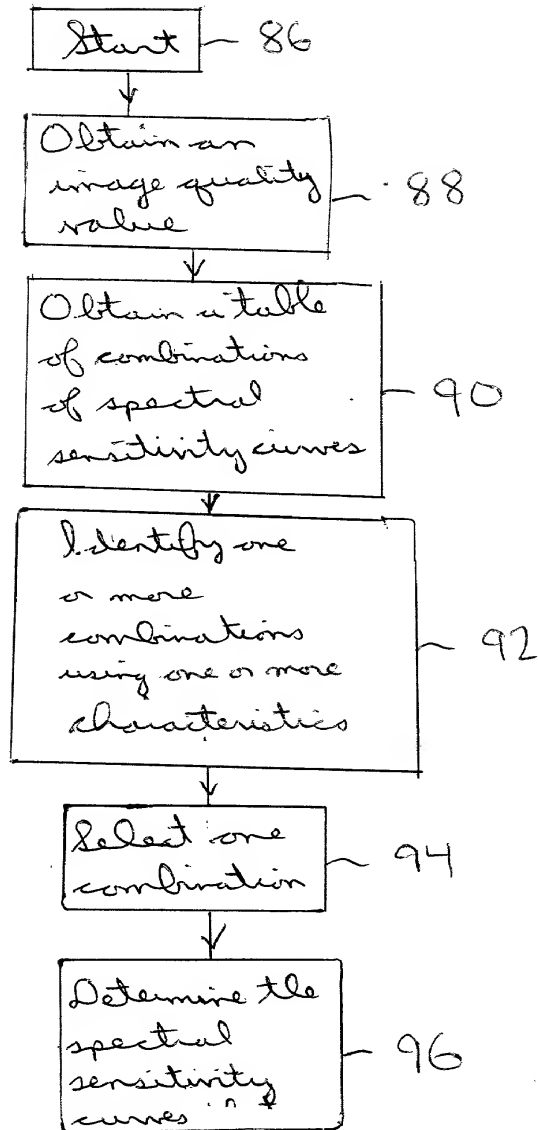 Start 86
Obtain an
image quality
value
88
Obtain a table
of combinations
of spectral
sensitivity curves
90
Identify one
or more
combinations
using one or more
characteristics
92
Select one
combination
94
Determine the
spectral
sensitivity
curves
96